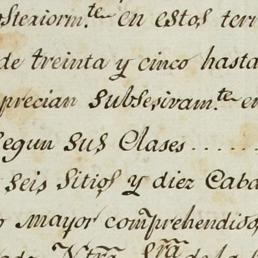 osteriorm.te en estos terr
de treinta y cinco hasta
precian subsesivam.te en
segun sus Clases......
seis Sitios y diez Caba
mayor comprehendido,
Ntra Sra de la